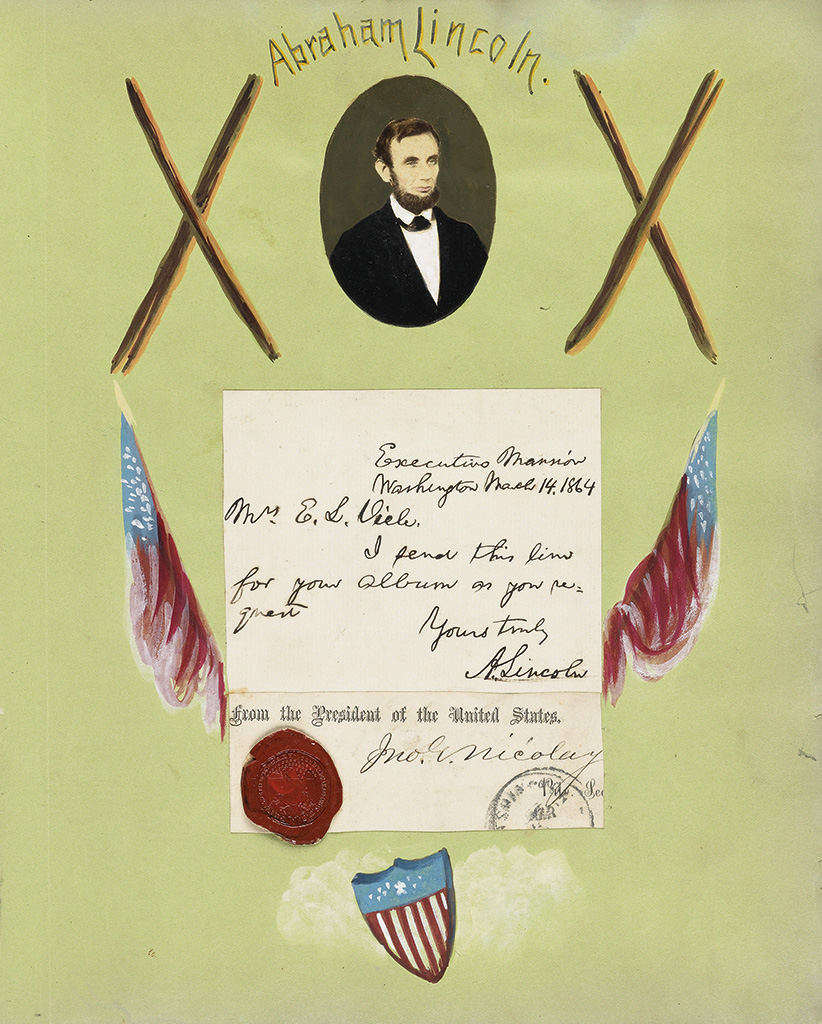 Abraham Lincoln.
Executive Mansion
Washington March 14. 1864
Mrs E. L. Viele.
I send this line
for your album as you re=
quest
Yours truly
A. Lincoln
From the President of the United States.
Jno. G. Nicolay